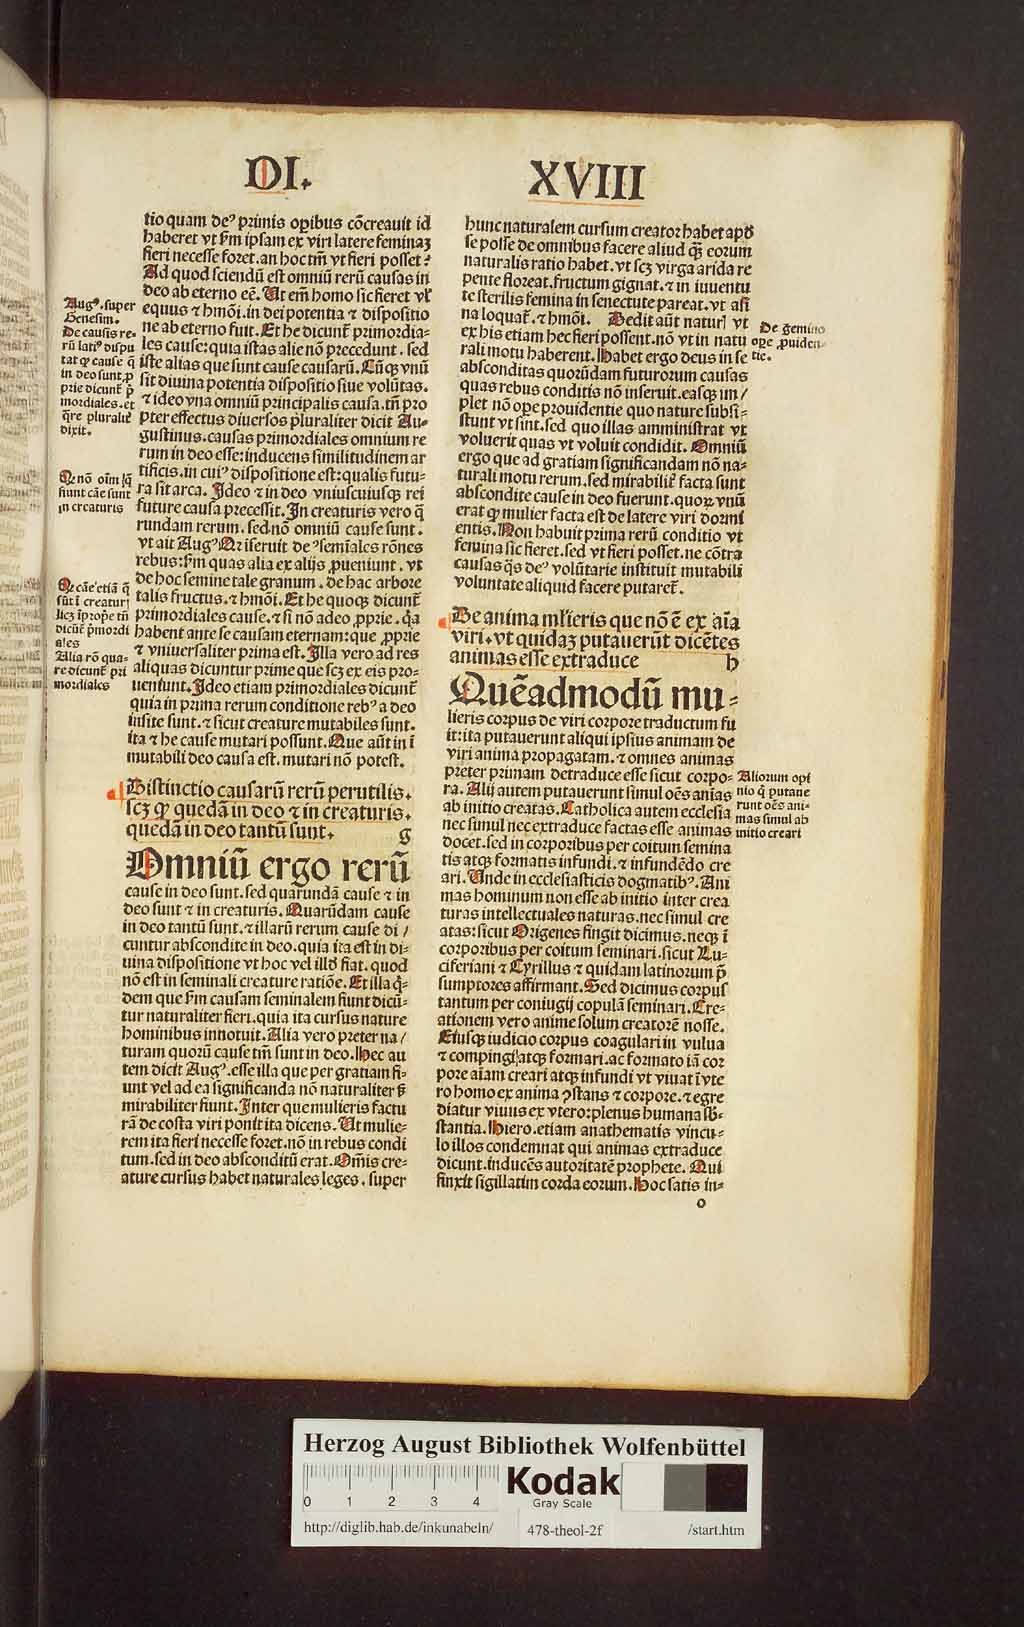 DI.
XVIII
tio quam deꝰ primis oꝑibus cõcreauit id
haberet vt ẜm ipsam ex viri latere feminaꝫ
fieri necesse foret. an hoc tm̃ vt fieri posset?
Ad quod sciendũ est omniũ rerũ causas in
deo ab eterno eẽ. Ut em̃ homo sic fieret vl̃
equus ⁊ hmõi. in dei potentia ⁊ dispositio
ne ab eterno fuit. Et he dicunt̃ primordia⸗
les cause: quia istas alie nõ precedunt. sed
iste alias que sunt cause causarũ. Cũqꝫ vnũ
sit diuina potentia dispositio siue volũtas.
⁊ ideo vna omniũ principalis causa. tñ pro
pter effectus diuersos pluraliter dicit Au⸗
gustinus. causas primordiales omnium re
rum in deo esse: inducens similitudinem ar
tificis. in cuiꝰ dispositione est: qualis futu⸗
ra sit arca. Ideo ⁊ in deo vniuscuiusqꝫ rei
future causa precessit. In creaturis vero q̃
rundam rerum. sed nõ omniũ cause sunt.
vt ait Augꝰ Qꝛ iseruit deꝰ semĩales rõnes
rebus: ẜm quas alia ex alijs ꝓueniunt. vt
de hoc semine tale granum. de hac arbore
talis fructus. ⁊ hmõi. Et he quoqꝫ dicunt̃
primordiales cause. ⁊ si nõ adeo ꝓprie. q̃a
habent ante se causam eternam: que ꝓprie
⁊ vniuersaliter prima est. Illa vero ad res
aliquas dicuntur prime que scꝫ ex eis pro⸗
ueniunt. Ideo etiam primordiales dicunt̃
quia in prima rerum conditione rebꝰ a deo
insite sunt. ⁊ sicut creature mutabiles sunt.
ita ⁊ he cause mutari possunt. Que aũt in ĩ
mutabili deo causa est. mutari nõ potest.
Distinctio causarũ rerũ perutilis.
scꝫ qꝙ quedã in deo ⁊ in creaturis.
quedã in deo tantũ sunt. g
Omniũ ergo rerũ
cause in deo sunt. sed quarundã cause ⁊ in
deo sunt ⁊ in creaturis. Quarũdam cause
in deo tantũ sunt. ⁊ illarũ rerum cause di/
cuntur abscondite in deo. quia ita est in di⸗
uina dispositione vt hoc vel illd̃ fiat. quod
nõ est in seminali creature ratiõe. Et illa q̃⸗
dem que ẜm causam seminalem fiunt dicũ⸗
tur naturaliter fieri. quia ita cursus nature
hominibus innotuit. Alia vero preter na/
turam quorũ cause tm̃ sunt in deo. Hec au
tem dicit Augꝰ. esse illa que per gratiam fi⸗
unt vel ad ea significanda nõ naturaliter s̃
mirabiliter fiunt. Inter que mulieris factu
rã de costa viri ponit ita dicens. Ut mulie⸗
rem ita fieri necesse foret. nõ in rebus condi
tum. sed in deo absconditũ erat. Om̃is cre⸗
ature cursus habet naturales leges. super
Augꝰ. super
Genesim.
De causis re⸗
rũ latiꝰ dispu
tat qꝙ cause q̃
in deo sunt ꝓ
prie dicunt̃ p̃
mordiales. et
q̃re pluralit̃
dixit.
Qꝛ nõ oĩm
fiunt cãe sunt
in creaturis
Qꝛ cãe etiã q̃
sũt ĩ creaturꝭ
licꝫ ĩprope tñ
dicũt̃ p̃mordi
ales
Alia rõ qua⸗
re dicunt̃ pri
mordiales
hunc naturalem cursum creator habet apd̃
se posse de omnibus facere aliud q̃ꝫ eorum
naturalis ratio habet. vt scꝫ virga arida re
pente floreat. fructum gignat. ⁊ in iuuentu
te sterilis femina in senectute pareat. vt asĩ
na loquat̃. ⁊ hmõi. Dedit aũt naturꝭ vt
ex his etiam hec fieri possent. nõ vt in natu
rali motu haberent. Habet ergo deus in se
absconditas quorũdam futurorum causas
quas rebus conditis nõ inseruit. easqꝫ im/
plet nõ oꝑe prouidentie quo nature subsi⸗
stunt vt sint. sed quo illas amministrat vt
voluerit quas vt voluit condidit. Omniũ
ergo que ad gratiam significandam nõ na⸗
turali motu rerum. sed mirabilit̃ facta sunt
abscondite cause in deo fuerunt. quoꝝ vnũ
erat qꝙ mulier facta est de latere viri dormi
entis. Non habuit prima rerũ conditio vt
femina sic fieret. sed vt fieri posset. ne cõtra
causas q̃s deꝰ volũtarie instituit mutabili
voluntate aliquid facere putaret̃.
De anima ml̃ieris que nõ ẽ ex aĩa
viri. vt quidaꝫ putauerũt dicẽtes
animas esse ex traduce h
Quẽadmodũ mu⸗
lieris corpus de viri corpore traductum fu
it: ita putauerunt aliqui ipsius animam de
viri anima propagatam. ⁊ omnes animas
preter primam de traduce esse sicut corpo⸗
ra. Alij autem putauerunt simul oẽs aĩas
ab initio creatas. Catholica autem ecclesia
nec simul nec ex traduce factas esse animas
docet. sed in corporibus per coitum semina
tis atqꝫ formatis infundi. ⁊ infundẽdo cre
ari. Unde in ecclesiasticis dogmatibꝰ. Ani
mas hominum non esse ab initio inter crea
turas intellectuales naturas. nec simul cre
atas: sicut Origenes fingit dicimus. neqꝫ ĩ
corporibus per coitum seminari. sicut Lu⸗
ciferiani ⁊ Cyrillus ⁊ quidam latinorum p̃
sumptores affirmant. Sed dicimus corpus
tantum per coniugij copulã seminari. Cre⸗
ationem vero anime solum creatorẽ nosse.
Eiusqꝫ iudicio corpus coagulari in vulua
⁊ compingi atqꝫ formari. ac formato iã cor
pore aĩam creari atqꝫ infundi vt viuat ĩ vte
ro homo ex anima ꝯstans ⁊ corpore. ⁊ egre
diatur viuus ex vtero: plenus humana sb̃⸗
stantia. Hiero. etiam anathematis vincu⸗
lo illos condemnat qui animas ex traduce
dicunt. inducẽs autoritatẽ prophete. Qui
finxit sigillatim corda eorum. Hoc satis in⸗
o
De gemino
oꝑe ꝓuiden⸗
tie.
Aliorum opi
nio q̃ putaue
runt oẽs ani⸗
mas simul ab
initio creari
Herzog August Bibliothek Wolfenbüttel
0 1 2 3 4
Kodak
Gray Scale
http://diglib.hab.de/inkunabeln/ 478-theol-2f /start.htm